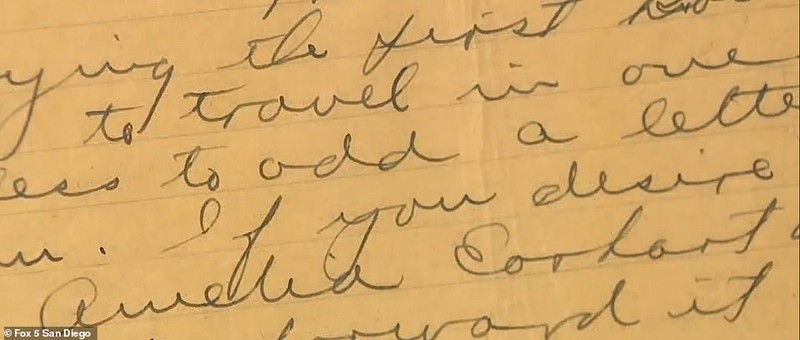 ying the first
to travel in one
less to add a lette
u. If you desire
Amelia Earhart
forward it
© Fox 5 San Diego